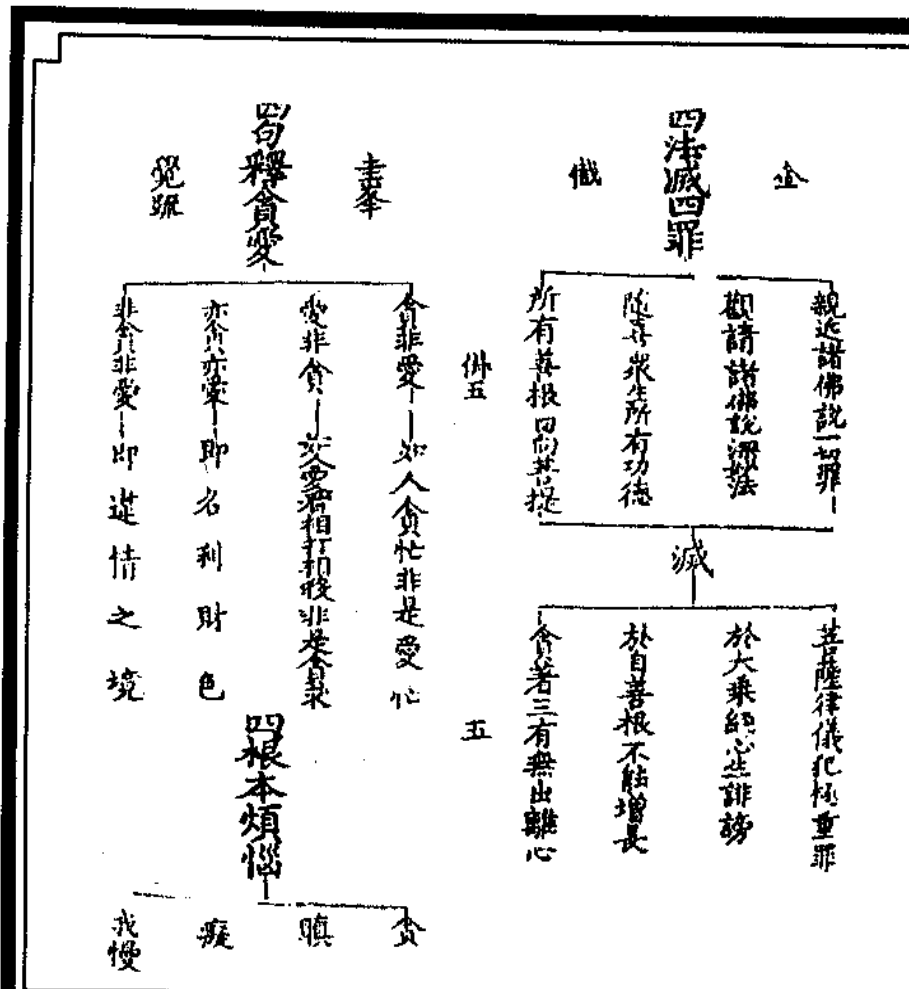 四法滅四罪
金
懺
親近諸佛說一切罪
勸請諸佛說深妙法
隨喜眾生所有功德
所有善根回向菩提
滅
菩薩律儀犯極重罪
於大乘經心生誹謗
於自善根不能增長
貪著三有無出離心
佛五
五
四句釋貪愛
圭峯
覺疏
貪非愛 如人貪忙非是愛忙
愛非貪
亦貪亦愛 即名利財色
非貪非愛 即違情之境
四根本煩惱
貪
瞋
癡
我慢